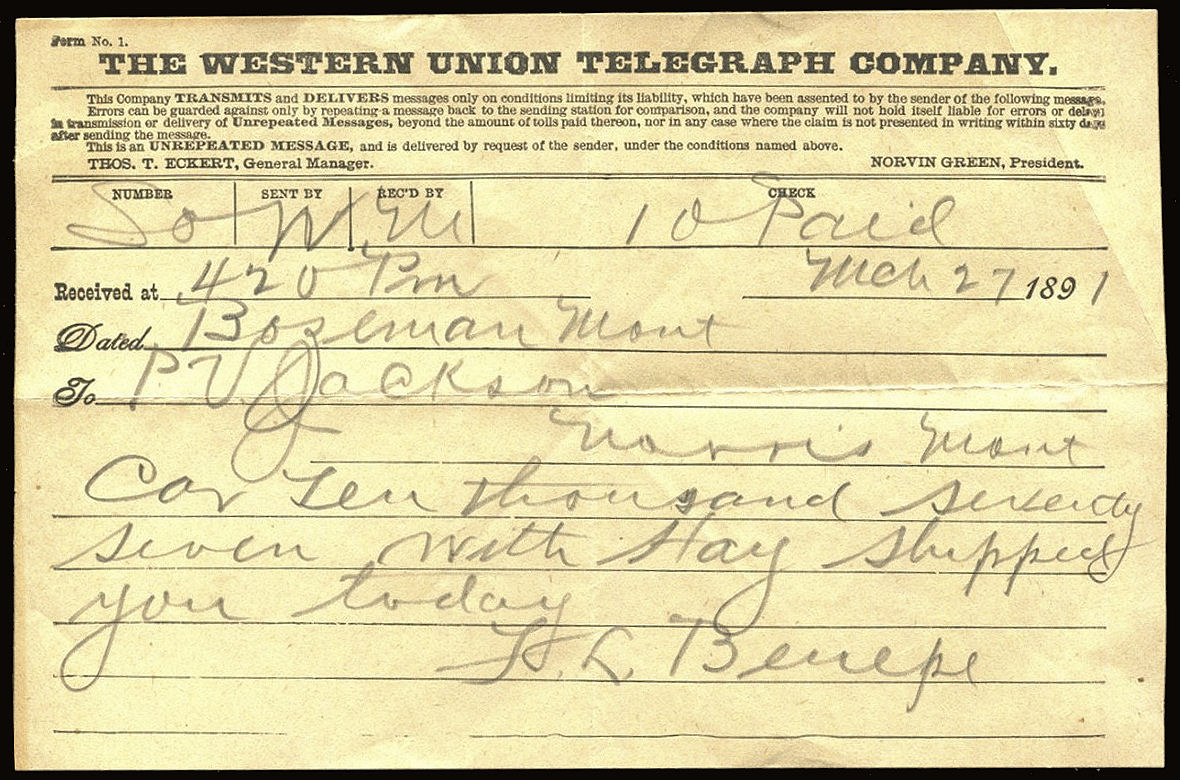 Form No. 1.
THE WESTERN UNION TELEGRAPH COMPANY.
This Company TRANSMITS and DELIVERS messages only on conditions limiting its liability, which have been assented to by the sender of the following message.
Errors can be guarded against only by repeating a message back to the sending station for comparison, and the company will not hold itself liable for errors or delays
in transmission or delivery of Unrepeated Messages, beyond the amount of tolls paid thereon, nor in any case where the claim is not presented in writing within sixty days
after sending the message.
This is an UNREPEATED MESSAGE, and is delivered by request of the sender, under the conditions named above.
THOS. T. ECKERT, General Manager. NORVIN GREEN, President.
NUMBER SENT BY REC'D BY CHECK
10 Paid
Received at 420 Pm Mch 27 1891
Dated Boseman Mont
To P V Jackson
Norris Mont
Car ten thousand seventy
seven with Hay shipped
you today
L. Benepe